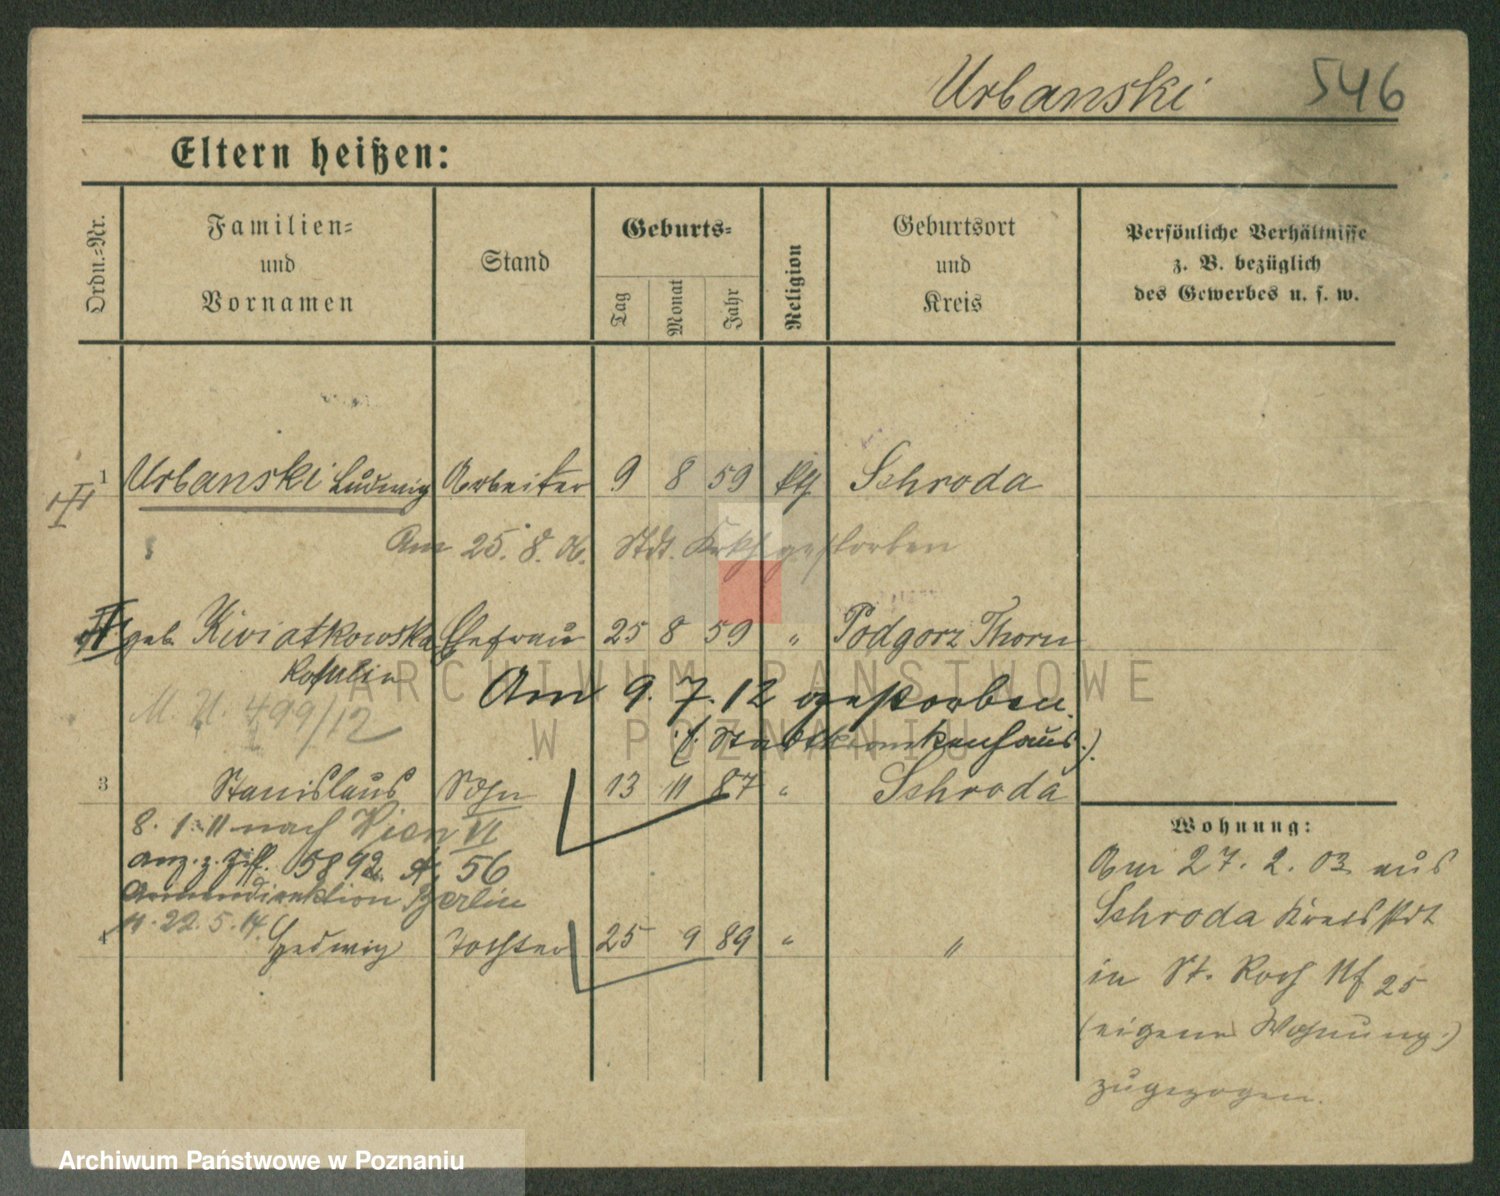 Urbanski 546
Eltern heißen:
Ordn.-Nr. Familien- und Vornamen Stand Geburts- Tag Monat Jahr Religion Geburtsort und Kreis Persönliche Verhältnisse z. B. bezüglich des Gewerbes u. s. w.
1 Urbanski Ludwig Arbeiter 9 8 59 kth Schroda
Am 25. 8. 06. Stdt. Krkh gestorben
geb. Kwiatkowska Ehefrau 25 8 59 " Podgorz Thorn
Rosalie
Am 9. 7. 12 gestorben.
M. U. 499/12
(i. Stadtkrankenhaus.)
3 Stanislaus Sohn 13 11 87 " Schroda
8. 1. 11 nach Wien VI
Anz. z. Ziff. 5892. A. 56
Armendirektion Berlin
22. 5. 14.
4 Hedwig Tochter 25 9 89 " "
Wohnung:
Am 27. 2. 03 aus
Schroda Kreisstdt
in St. Roch Nf 25
(eigene Wohnung.)
zugezogen.
ARCHIWUM PAŃSTWOWE
W POZNANIU
Archiwum Państwowe w Poznaniu